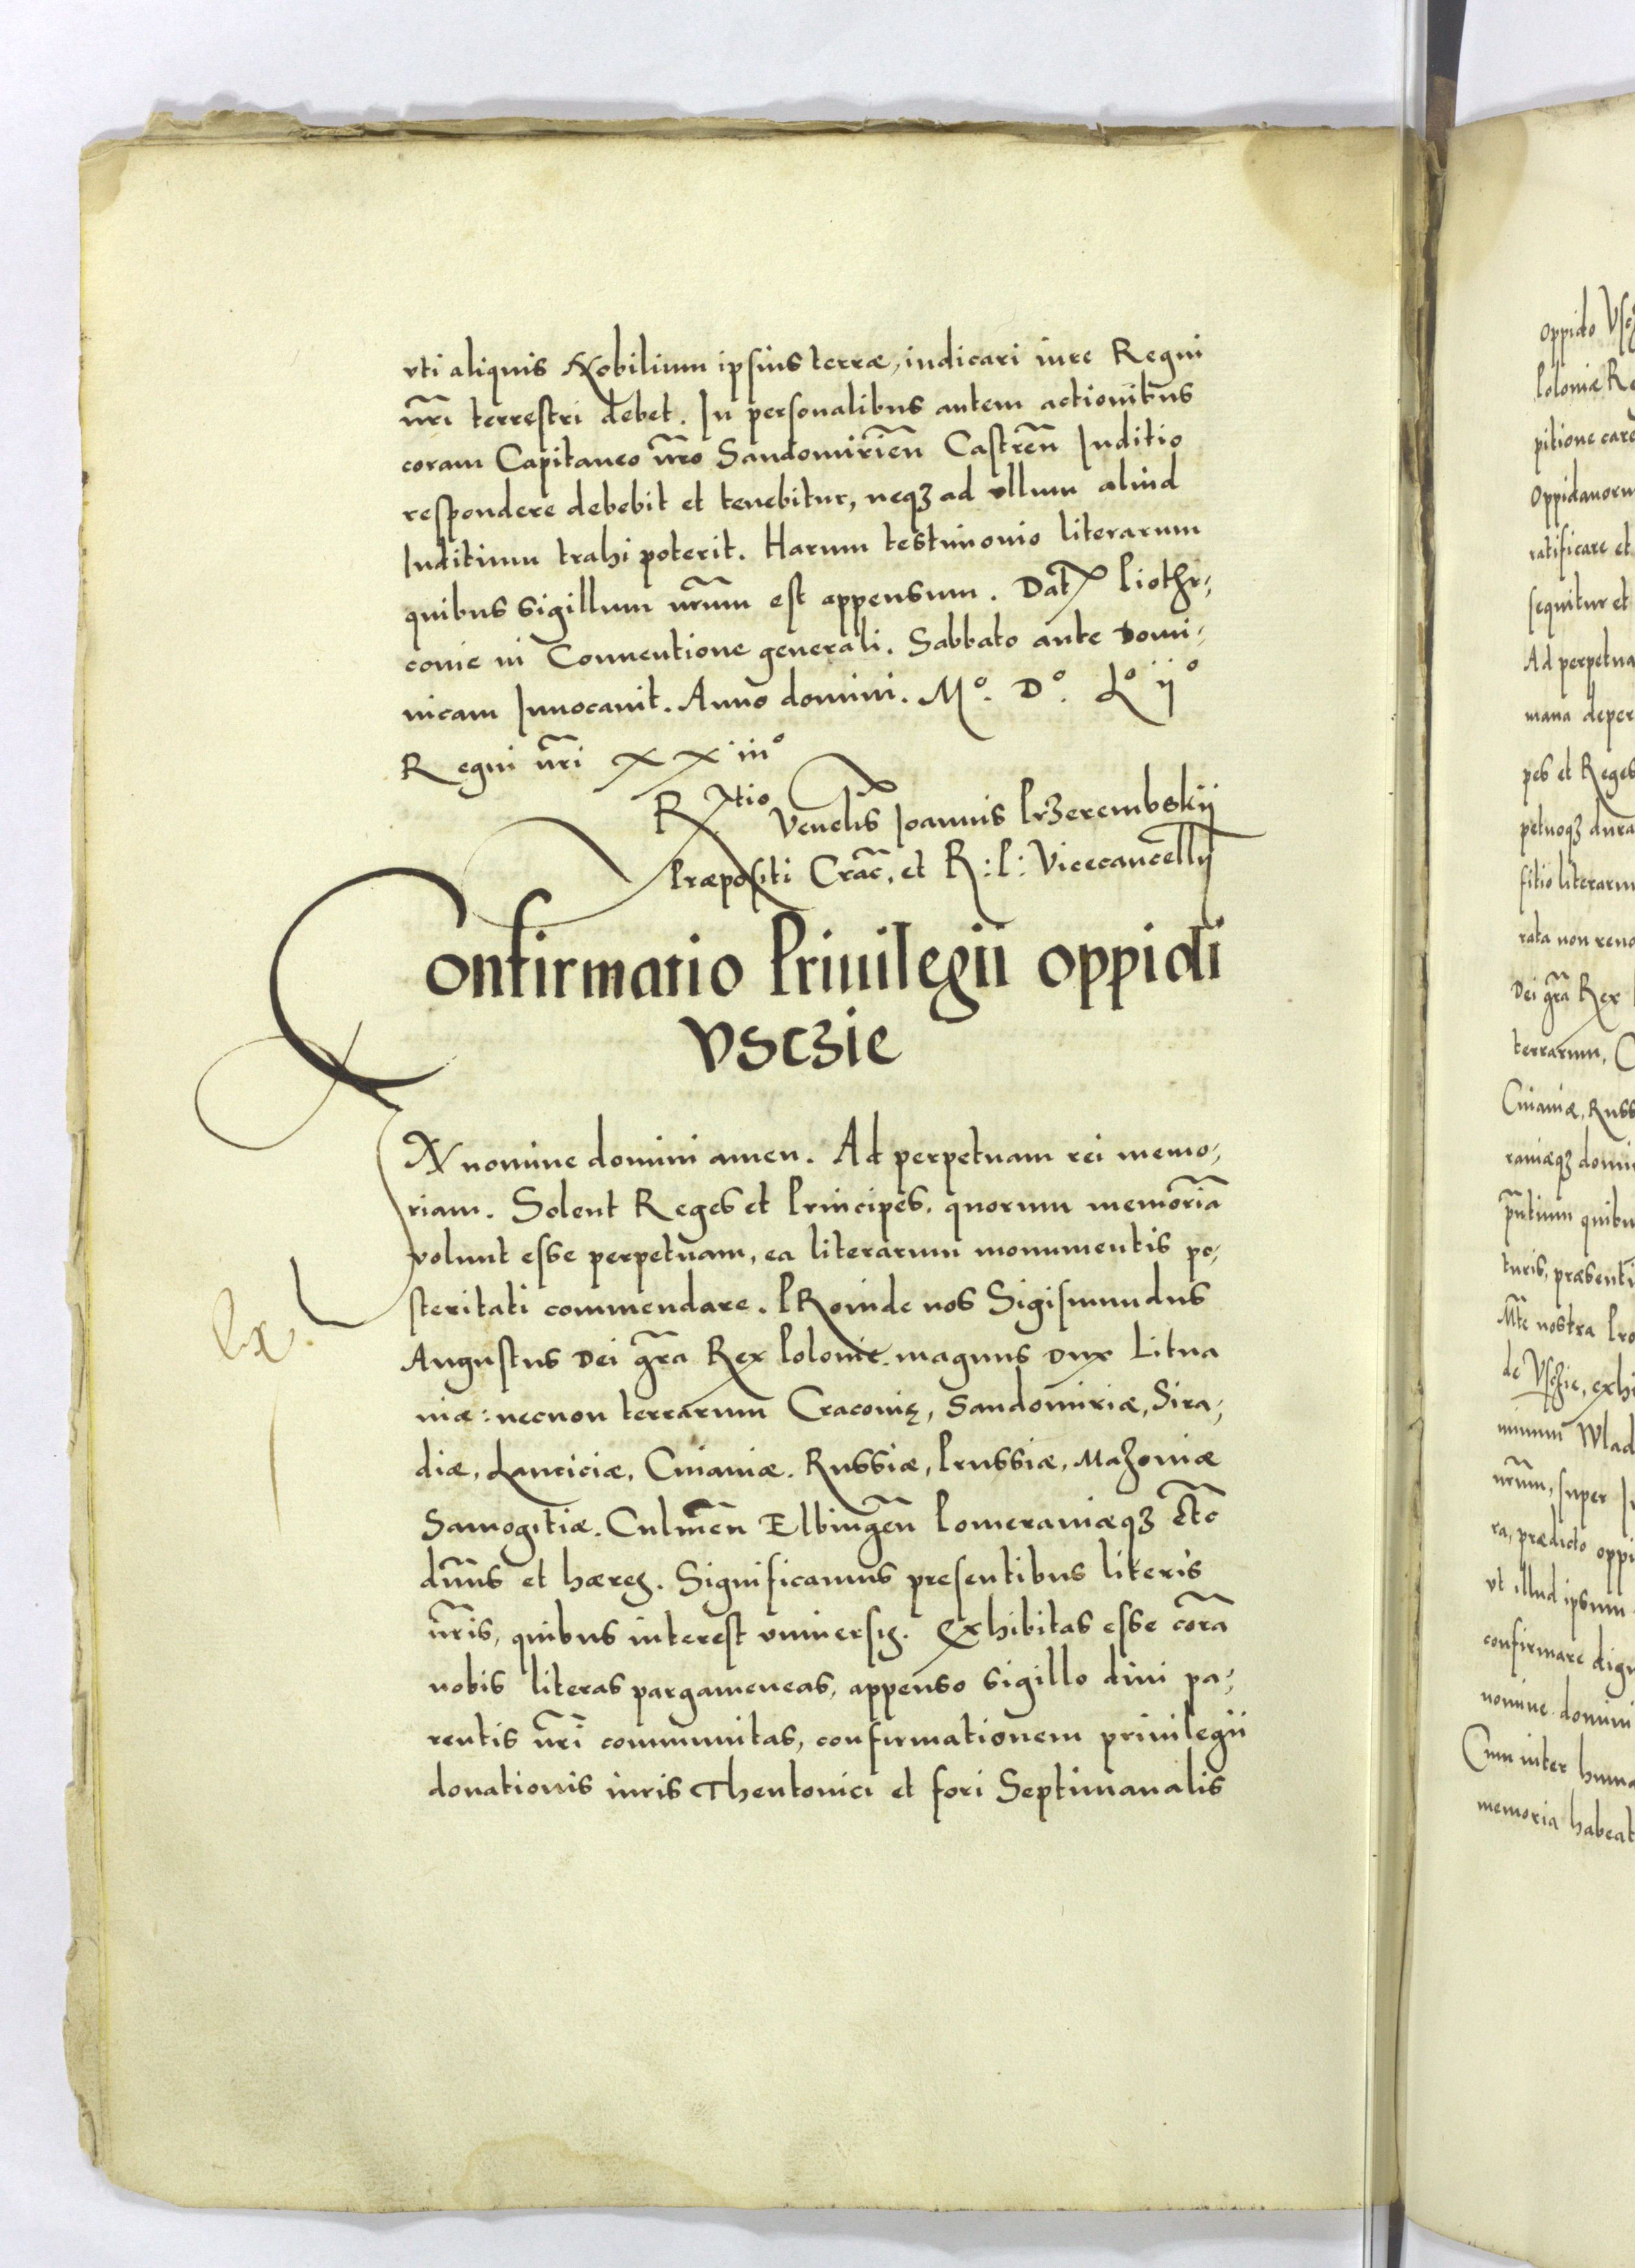 vti aliquis Nobilium ipsius terræ, iudicari iure Regni
nr̃i terrestri debet. In personalibus autem actionibus
coram Capitaneo nr̃o Sandomirień Castreń Iuditio
respondere debebit et tenebitur, neqꝫ ad vllum aliud
Iuditium trahi poterit. Harum testimonio literarum
quibus sigillum nr̃um est appensum. Dat̃ Piothr,
coniæ in Conuentione generali. Sabbato ante Domi,
nicam Inuocauit. Anno domini. Mº. Dº. Lº ijº
Regni nr̃i XXiiiº
Rᵗⁱᵒ Venelis Joannis Przerembskij
Præpositi Crac̃, et R: P: Vicecancellij
Confirmatio Priuilegii oppidi
Vsczie
IN nomine domini amen. Ad perpetuam rei memo,
riam. Solent Reges et Principes. quorum memoria͂
volunt esse perpetuam, ea literarum monumentis po,
steritati commendare. PRoinde nos Sigismundus
Augustus Dei gr̃a Rex Poloniæ. magnus Dux Litua
niæ: necnon terrarum Cracouię, Sandomiriæ, Sira,
diæ, Lanciciæ, Cuiauiæ. Russiæ, Prussiæ, Mazouiæ
Samogitiæ. Culmeñ Elbingeñ Pomeraniæqꝫ etc̃
dn̄us et hæres. Significamus presentibus literis
nr̃is, quibus interest vniuersis. Exhibitas esse cora͂
nobis literas pargameneas, appenso sigillo diui pa,
rentis nr̃i communitas, confirmationem priuilegii
donationis iuris Theutonici et fori Septimanalis
Ex.
oppido
Poloniæ
pitione care
Oppidanorum
ratificare et
sequitur et
Ad perpetua
mana deper
pes et Reges
petuoqꝫ dura
sitio literarum
rata non reno
Dei gr̃a Rex
terrarum, C
Cuiauiæ, Russ
raniæqꝫ domi
pñtium quibu
turis, præsenti
Mt̃e nostra Pro
de Vsczie, exhi
minum Wlad
nr̃um, super
ra, prædicto oppi
vt illud ipsum
confirmare dign
nomine domini
Cum inter huma
memoria habeat